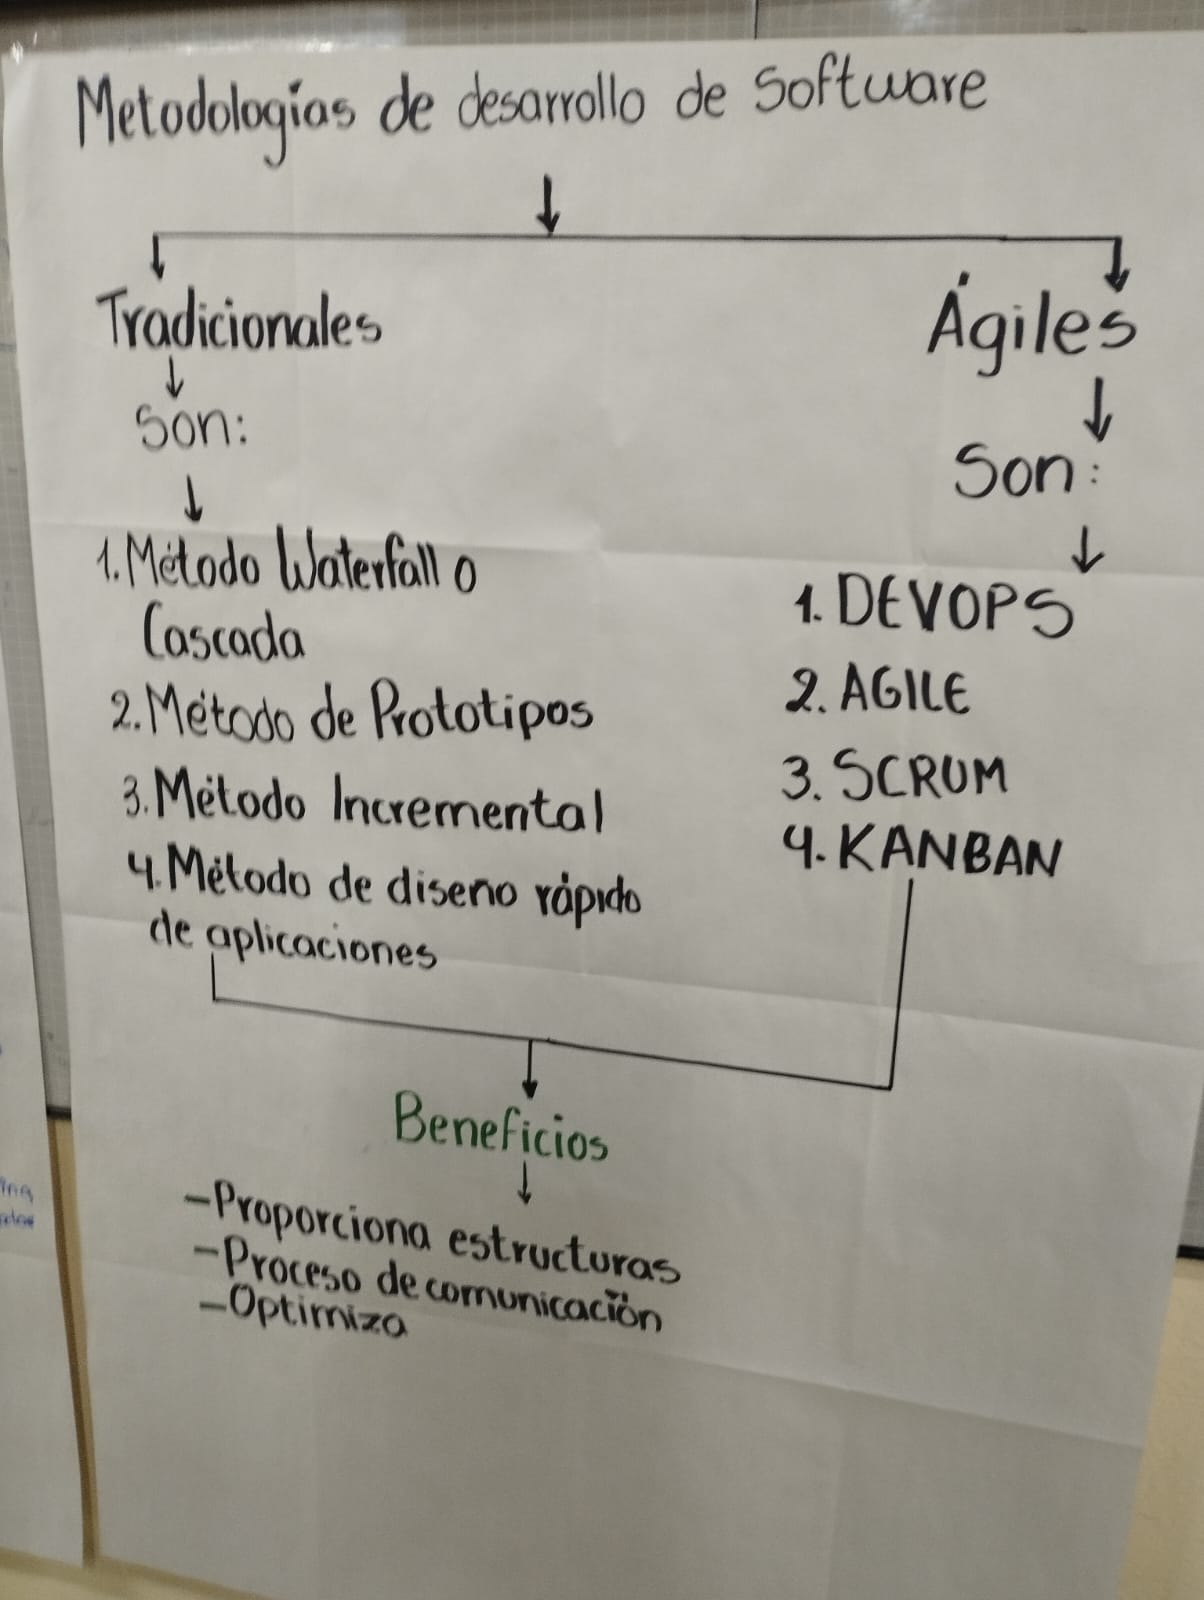 Metodologías de desarrollo de Software
Tradicionales
Son:
1. Método Waterfall o
Cascada
2. Método de Prototipos
3. Método Incremental
4. Método de diseño rápido
de aplicaciones
Ágiles
Son:
1. DEVOPS
2. AGILE
3. SCRUM
4. KANBAN
Beneficios
- Proporciona estructuras
- Proceso de comunicación
- Optimiza